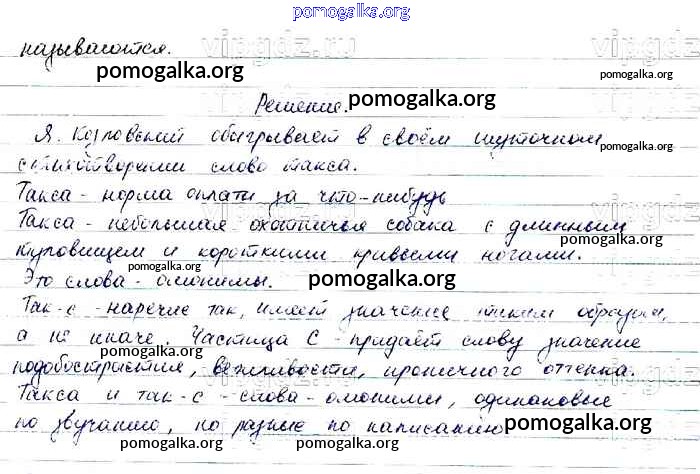 pomogalka.org
называются.
vipgdz.ru
pomogalka.org
pomogalka.org
Решение.
pomogalka.org
Я. Козловский обыгрывает в своём шуточном
стихотворении слово такса.
pomogalka.org
Такса - норма оплаты за что-нибудь
Такса - небольшая охотничья собака с длинным
туловищем и короткими кривыми ногами.
pomogalka.org
Это слова - омонимы.
pomogalka.org
pomogalka.org
Так-с - наречие так, имеет значение таким образом,
а не иначе. Частица С - придаёт слову значение
pomogalka.org
подобострастия, вежливости, ироничного оттенка.
Такса и так-с - слова - омонимы, одинаковые
по звучанию, но разные по написанию
pomogalka.org
pomogalka.org
pomogalka.org